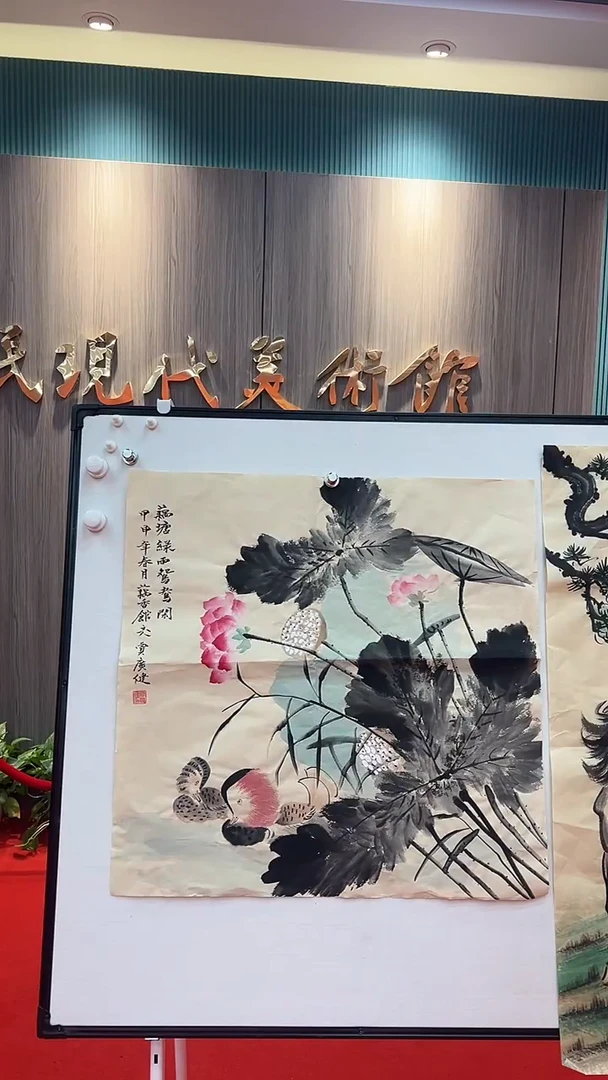 現代美術館
藕塘綠雨鴛鴦閑
甲申年春月藕香館主賈廣健